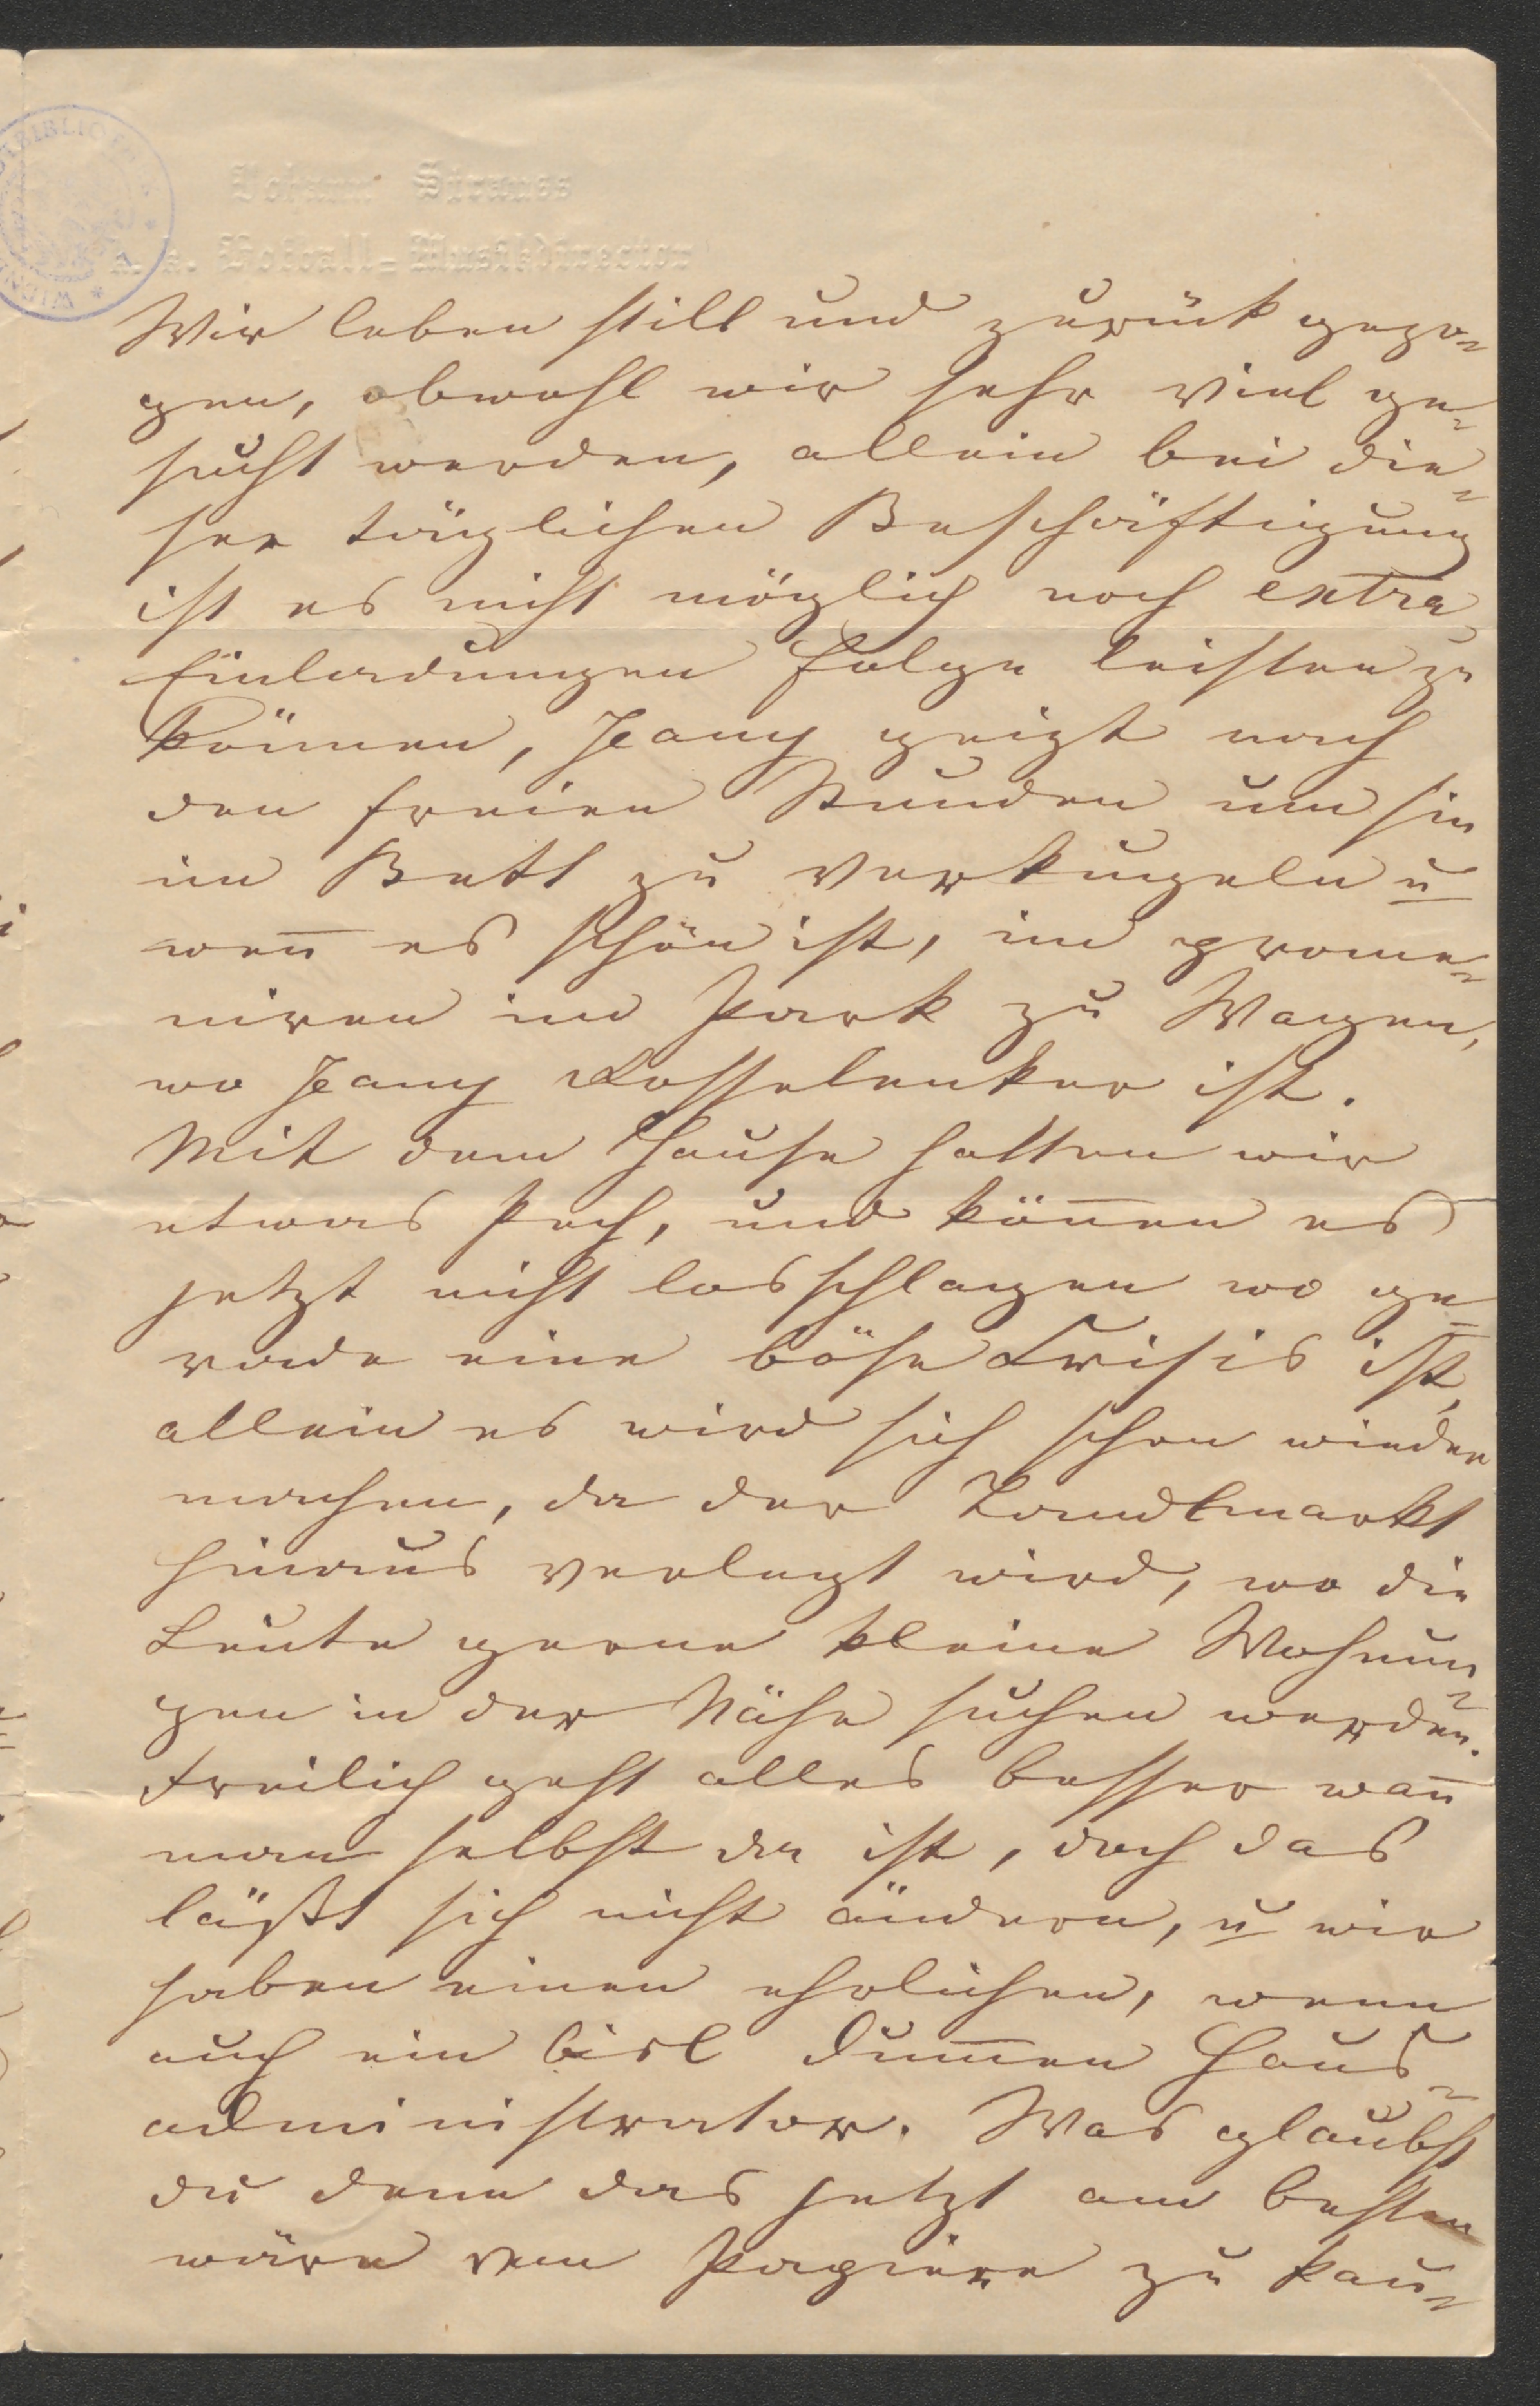 Johann Strauss
k. k. Hofball-Musikdirector
Wir leben still und zurück gezo-
gen, obwohl wir sehr viel ge-
sucht werden, allein bei die-
ser täglichen Beschäftigung
ist es nicht möglich noch extra
Einladungen Folge leisten zu
können, Jeany geizt nach
den freien Stunden um sie
im Bett zu verkugeln u
wen̄ es schön ist, im prome-
niren im Park zu Wagen,
wo Jeany Rosselenker ist.
Mit dem Hause hatten wir
etwas Pech, und kön̄en es
jetzt nicht losschlagen wo ge-
rade eine böse Krisis ist,
allein es wird sich schon wieder
machen, da der Landlmarkt
hinaus verlegt wird, wo die
Leute gerne kleine Wohnun-
gen in der Nähe suchen werden.
Freilich geht alles besser wan̄
man selbst da ist, doch das
läßt sich nicht ändern, u wir
haben einen ehrlichen, wenn
auch ein bisl dum̄en Haus-
administrator. Was glaubst
du denn das jetzt am besten
wäre von Papiere zu kau-